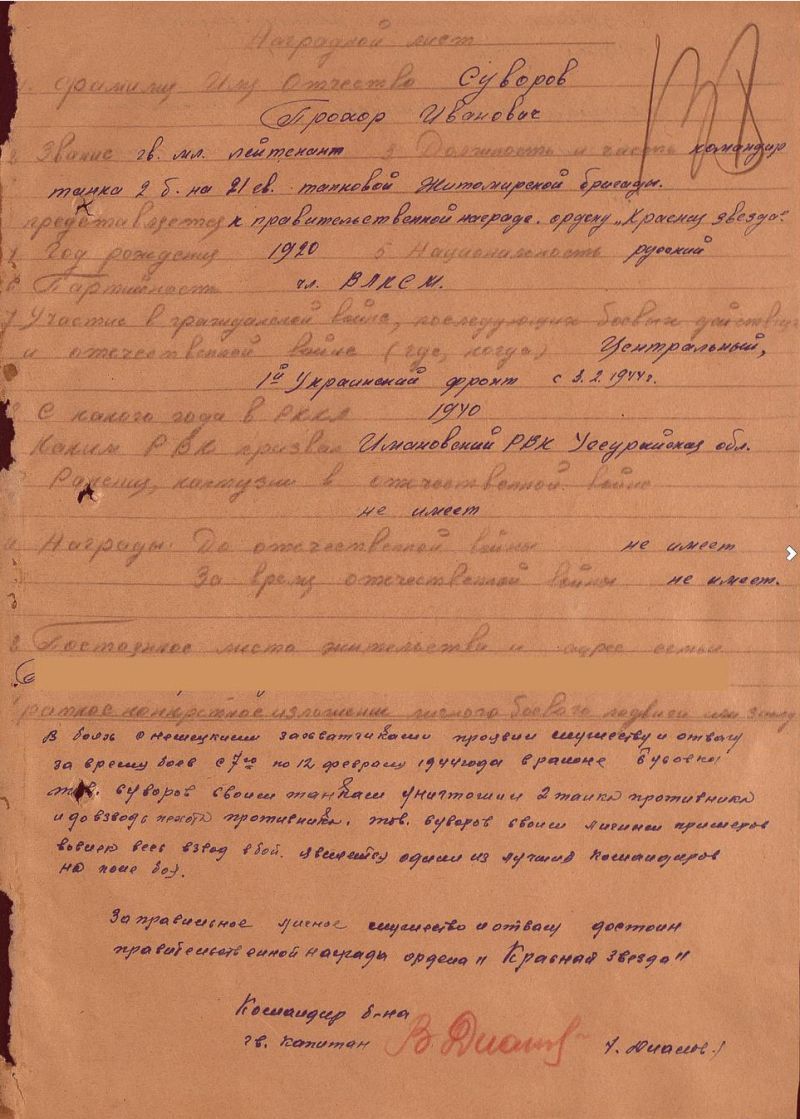 Наградной лист
1. Фамилия Имя Отчество Суворов
Прохор Иванович
2 Звание гв. мл. лейтенант 3 Должность и часть командир
танка 2 б-на 21 гв. танковой Житомирской бригады.
представляется к правительственной награде. ордену „Красная звезда"
4 Год рождения 1920 5 Национальность русский
6 Партийность чл. ВЛКСМ.
7 Участие в гражданской войне, последующих боевых действиях
и отечественной войне (где, когда) Центральный,
1й Украинский фронт с 3.2.1944г.
С какого года в РККА 1940
Каким РВК призван Имановский РВК Уссурийская обл.
Ранения, контузии в отечественной войне
не имеет
Награды: До отечественной войны не имеет
За время отечественной войны не имеет.
Постоянное место жительства и адрес семьи
Краткое конкретное изложение личного боевого подвига или заслуг
В боях с немецкими захватчиками проявил мужество и отвагу
за время боев с 7го по 12 февраля 1944 года в районе
тов. Суворов своим танком уничтожил 2 танка противника
и до взвода пехоты противника. тов. Суворов своим личным примером
весь взвод в бой. является одним из лучших командиров
на поле боя.
За личное мужество и отвагу достоин
правительственной награды ордена „Красная звезда"
Командир б-на
гв. капитан